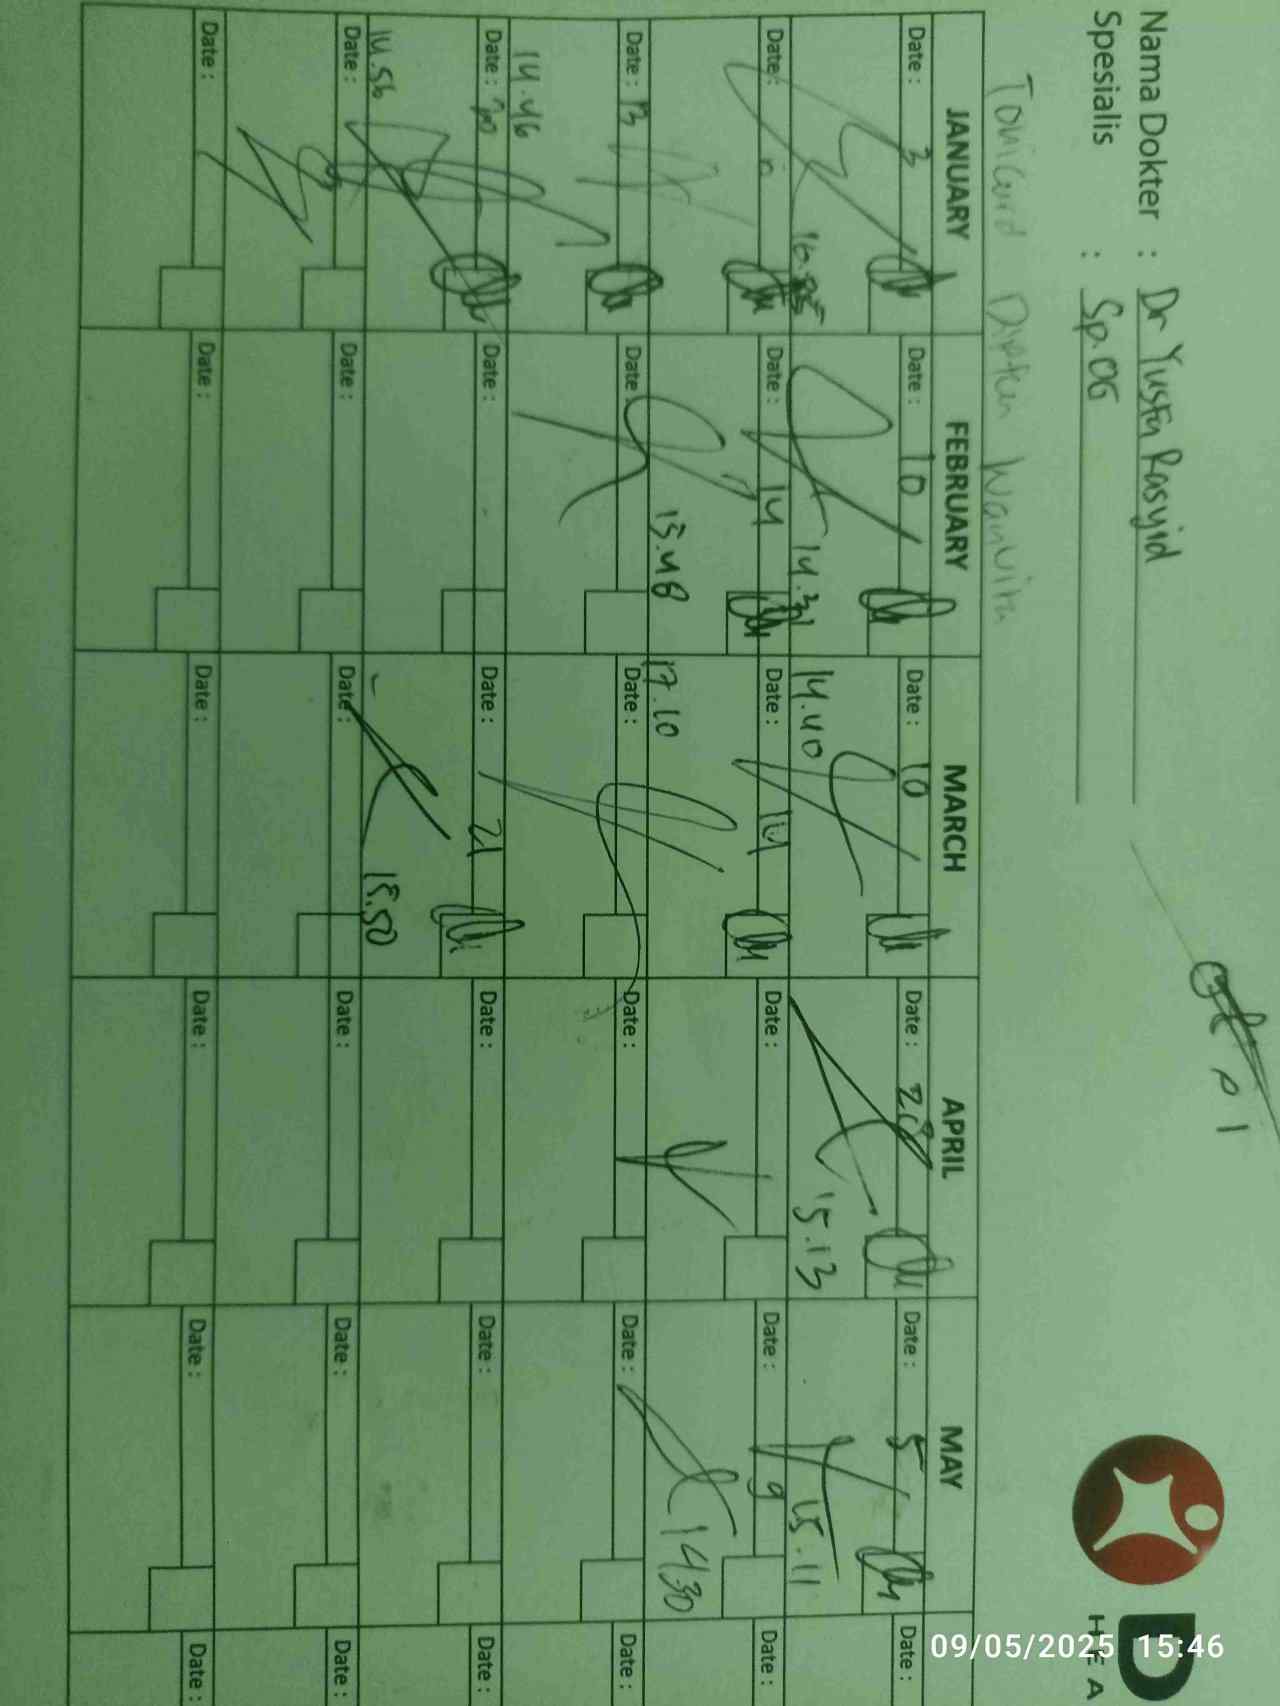 Nama Dokter : Dr Yusfa Rasyid
Spesialis : Sp.OG
D
HEA
JANUARY FEBRUARY MARCH APRIL MAY
Date : 3 Date : 10 Date : 10 Date : 28 Date : 5 Date :
14.31 14.40 15.13 15.11
Date : Date : 14 Date : 14 Date : Date : 9 Date :
15.48 17.10 14.30
Date : 13 Date : Date : Date : Date : Date :
14.46
Date : 20 Date : Date : 21 Date : Date : Date :
14.56 15.50
Date : Date : Date : Date : Date : Date :
Date : Date : Date : Date : Date : Date :
09/05/2025 15:46